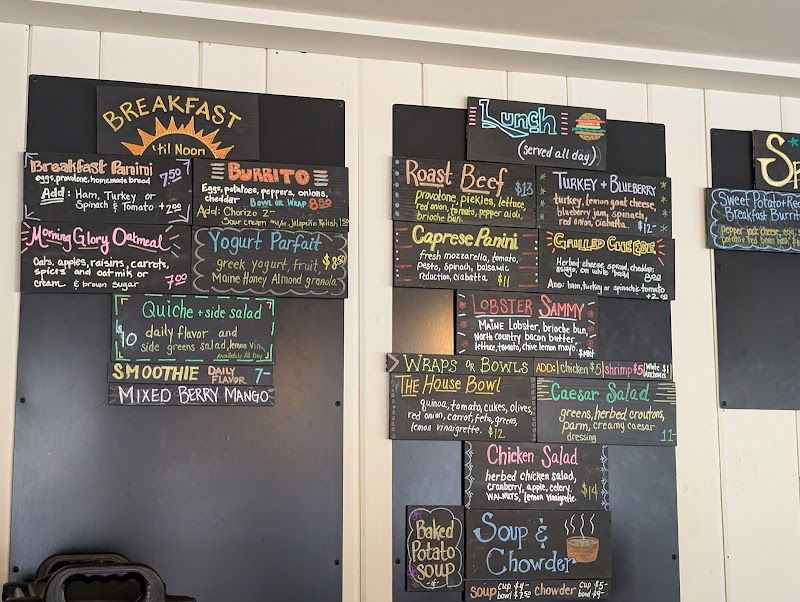 BREAKFAST
'til Noon
Breakfast Panini
eggs, provolone, homemade bread 7.50
Add: Ham, Turkey or
Spinach & Tomato +2.00
BURRITO 8.50
Eggs, potatoes, peppers, onions,
cheddar BOWL OR WRAP
Add: Chorizo 2-
Sour cream Jalapeño Relish
Morning Glory Oatmeal
Oats, apples, raisins, carrots,
spices and oatmilk or
cream & brown sugar 7.00
Yogurt Parfait
greek yogurt, fruit, $8.50
Maine Honey Almond granola
Quiche + side salad
10 daily flavor and
side greens salad, lemon vin.
Available All Day
SMOOTHIE DAILY FLAVOR 7-
MIXED BERRY MANGO
Lunch
(served all day)
Roast Beef $13
Provolone, pickles, lettuce,
red onion, tomato, pepper aioli,
brioche bun
TURKEY + BLUEBERRY
turkey, lemon goat cheese,
blueberry jam, spinach,
red onion, ciabatta $12-
Caprese Panini
fresh mozzarella, tomato,
pesto, spinach, balsamic
reduction, ciabatta $11
GRILLED CHEESE
Herbed cheese spread, cheddar,
asiago, on white bread 8.50
ADD: ham, turkey or spinach + tomato
+2.00
LOBSTER SAMMY
MAINE Lobster, brioche bun,
north country bacon butter,
lettuce, tomato, chive lemon mayo. $MKT
WRAPS or BOWLS ADD: chicken $5 shrimp $5 White Anchovies $1
THE House Bowl
quinoa, tomato, cukes, olives,
red onion, carrot, feta, greens,
lemon vinaigrette. $12
Caesar Salad
greens, herbed croutons,
parm, creamy caesar
dressing 11-
Chicken Salad
herbed chicken salad,
cranberry, apple, celery,
WALNUTS, Lemon Vinaigrette $14
Baked
Potato
soup
Soup &
Chowder
soup CUP $4- bowl $7.50 chowder CUP $5- bowl $9-
Sp
Sweet Potato
Breakfast Burrit
pepper jack cheese, egg,